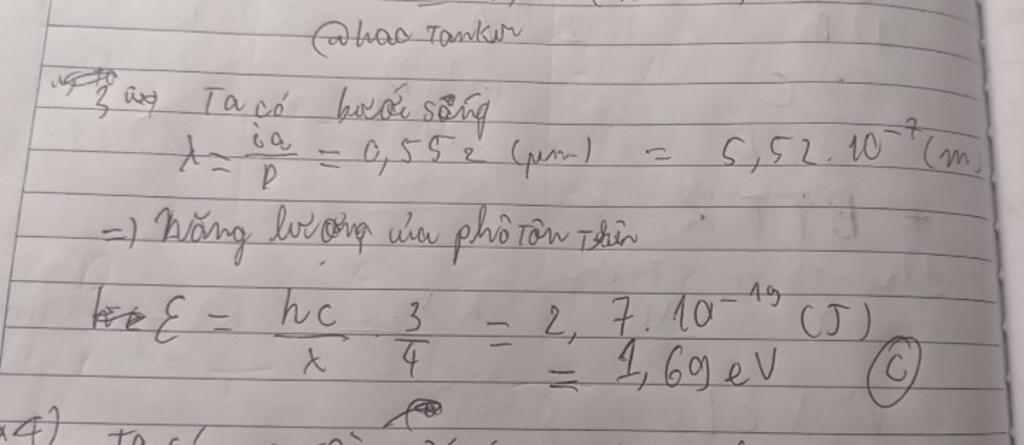 @hao Tanker
Ta có bước sóng
λ = ia/D = 0,552 (μm) = 5,52.10^-7 (m)
=) Năng lượng của phôtôn trên
ε = hc/λ 3/4 = 2,7.10^-19 (J)
= 1,69 eV (C)